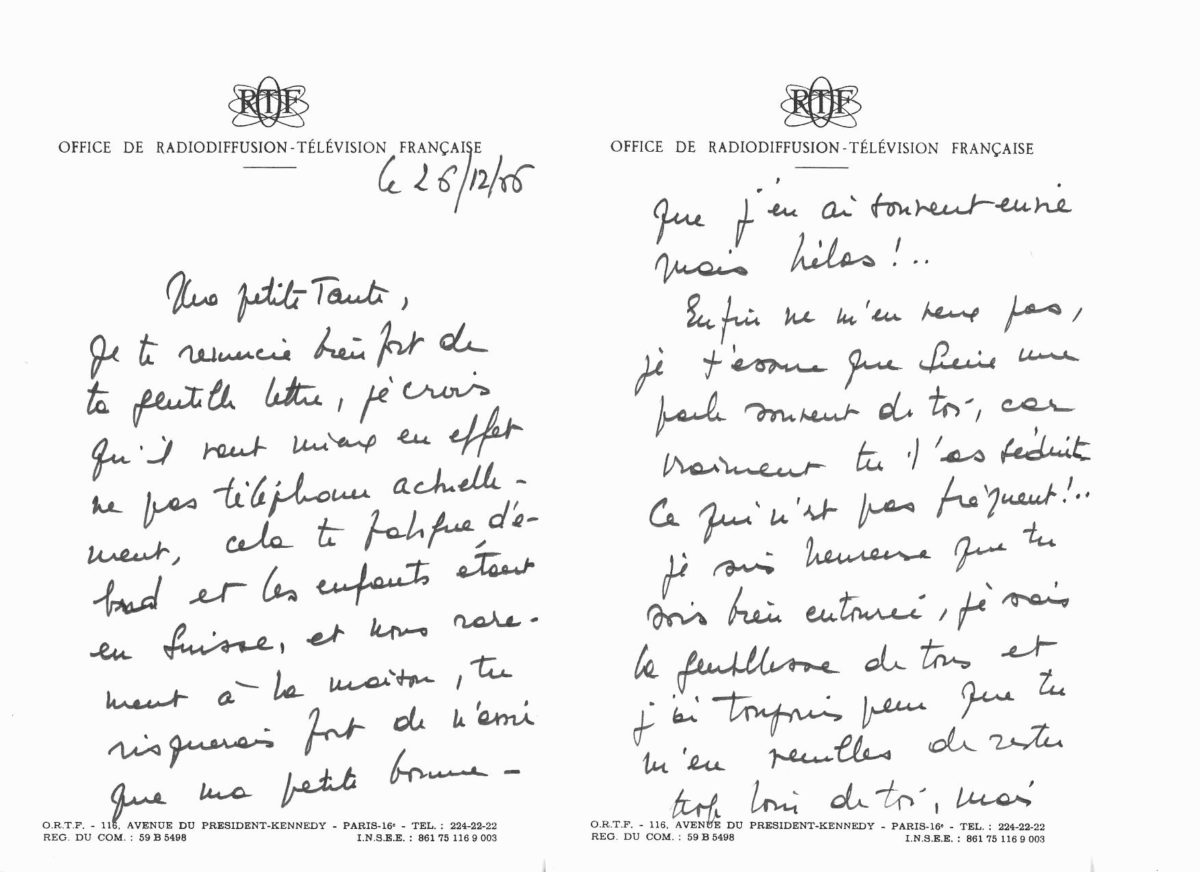 RTF
OFFICE DE RADIODIFFUSION-TÉLÉVISION FRANÇAISE
le 26/12/66
Ma petite Tante,
Je te remercie bien fort de
ta gentille lettre, je crois
qu'il vaut mieux en effet
ne pas téléphoner actuelle-
ment, cela te fatigue d'a-
bord et les enfants étant
en Suisse, et nous rare-
ment à la maison, tu
risquerais fort de n'avoir
que ma petite bonne -
O.R.T.F. - 116, AVENUE DU PRESIDENT-KENNEDY - PARIS-16e - TEL. : 224-22-22
REG. DU COM. : 59 B 5498 I.N.S.E.E. : 861 75 116 9 003
RTF
OFFICE DE RADIODIFFUSION-TÉLÉVISION FRANÇAISE
que j'en ai souvent envie
mais hélas!..
Enfin ne m'en veux pas,
je t'assure que Pierre me
parle souvent de toi, car
vraiment tu l'as séduit
Ce qui n'est pas fréquent!..
je suis heureuse que tu
sois bien entourée, je sais
la gentillesse de tous et
j'ai toujours peur que tu
m'en veuilles de rester
trop loin de toi, mais
O.R.T.F. - 116, AVENUE DU PRESIDENT-KENNEDY - PARIS-16e - TEL. : 224-22-22
REG. DU COM. : 59 B 5498 I.N.S.E.E. : 861 75 116 9 003